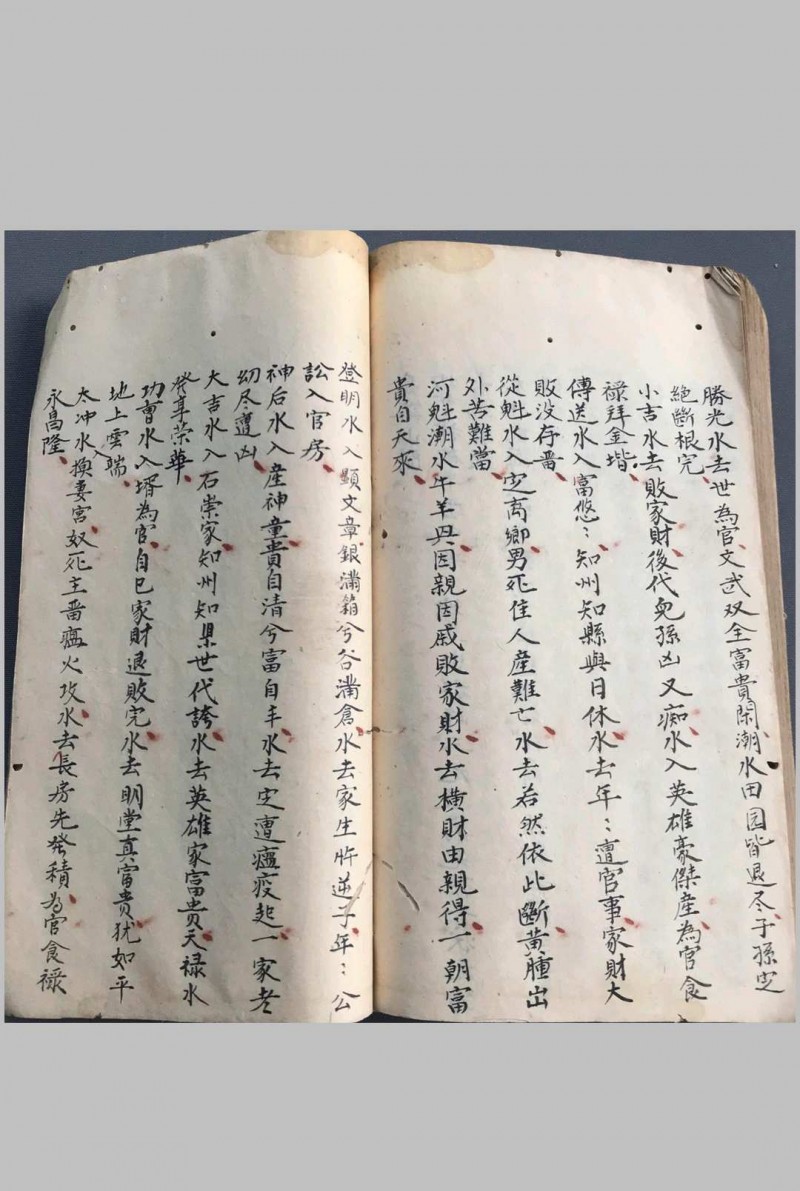 勝光水去世為官文武双全富貴閑潮水田园皆退尽子孫定
絕斷根完
小吉水去敗家財後代兒孫凶又痴水入英雄豪傑產為官食
祿拜金堦
傳送水入富悠：知州知縣與日休水去年：遭官事家財大
敗没存畱
從魁水入定离鄉男死住人產難亡水去若然依此斷黄腫出
外苦難當
河魁潮水牛羊興因親因戚敗家財水去橫財由親得一朝富
貴自天來
登明水入顯文章銀滿箱兮谷滿倉水去家生忤逆子年：公
訟入官房
神后水入產神童貴自清兮富自丰水去定遭瘟疫起一家老
幼尽遭凶
大吉水入石崇家知州知県世代誇水去英雄家富貴天禄水
發享荣華
功曹水入壻為官自己家財退敗完水去明堂真富貴犹如平
地上雲端
太冲水入換妻宮奴死主畱瘟火攻水去長房先發積為官食禄
永昌隆